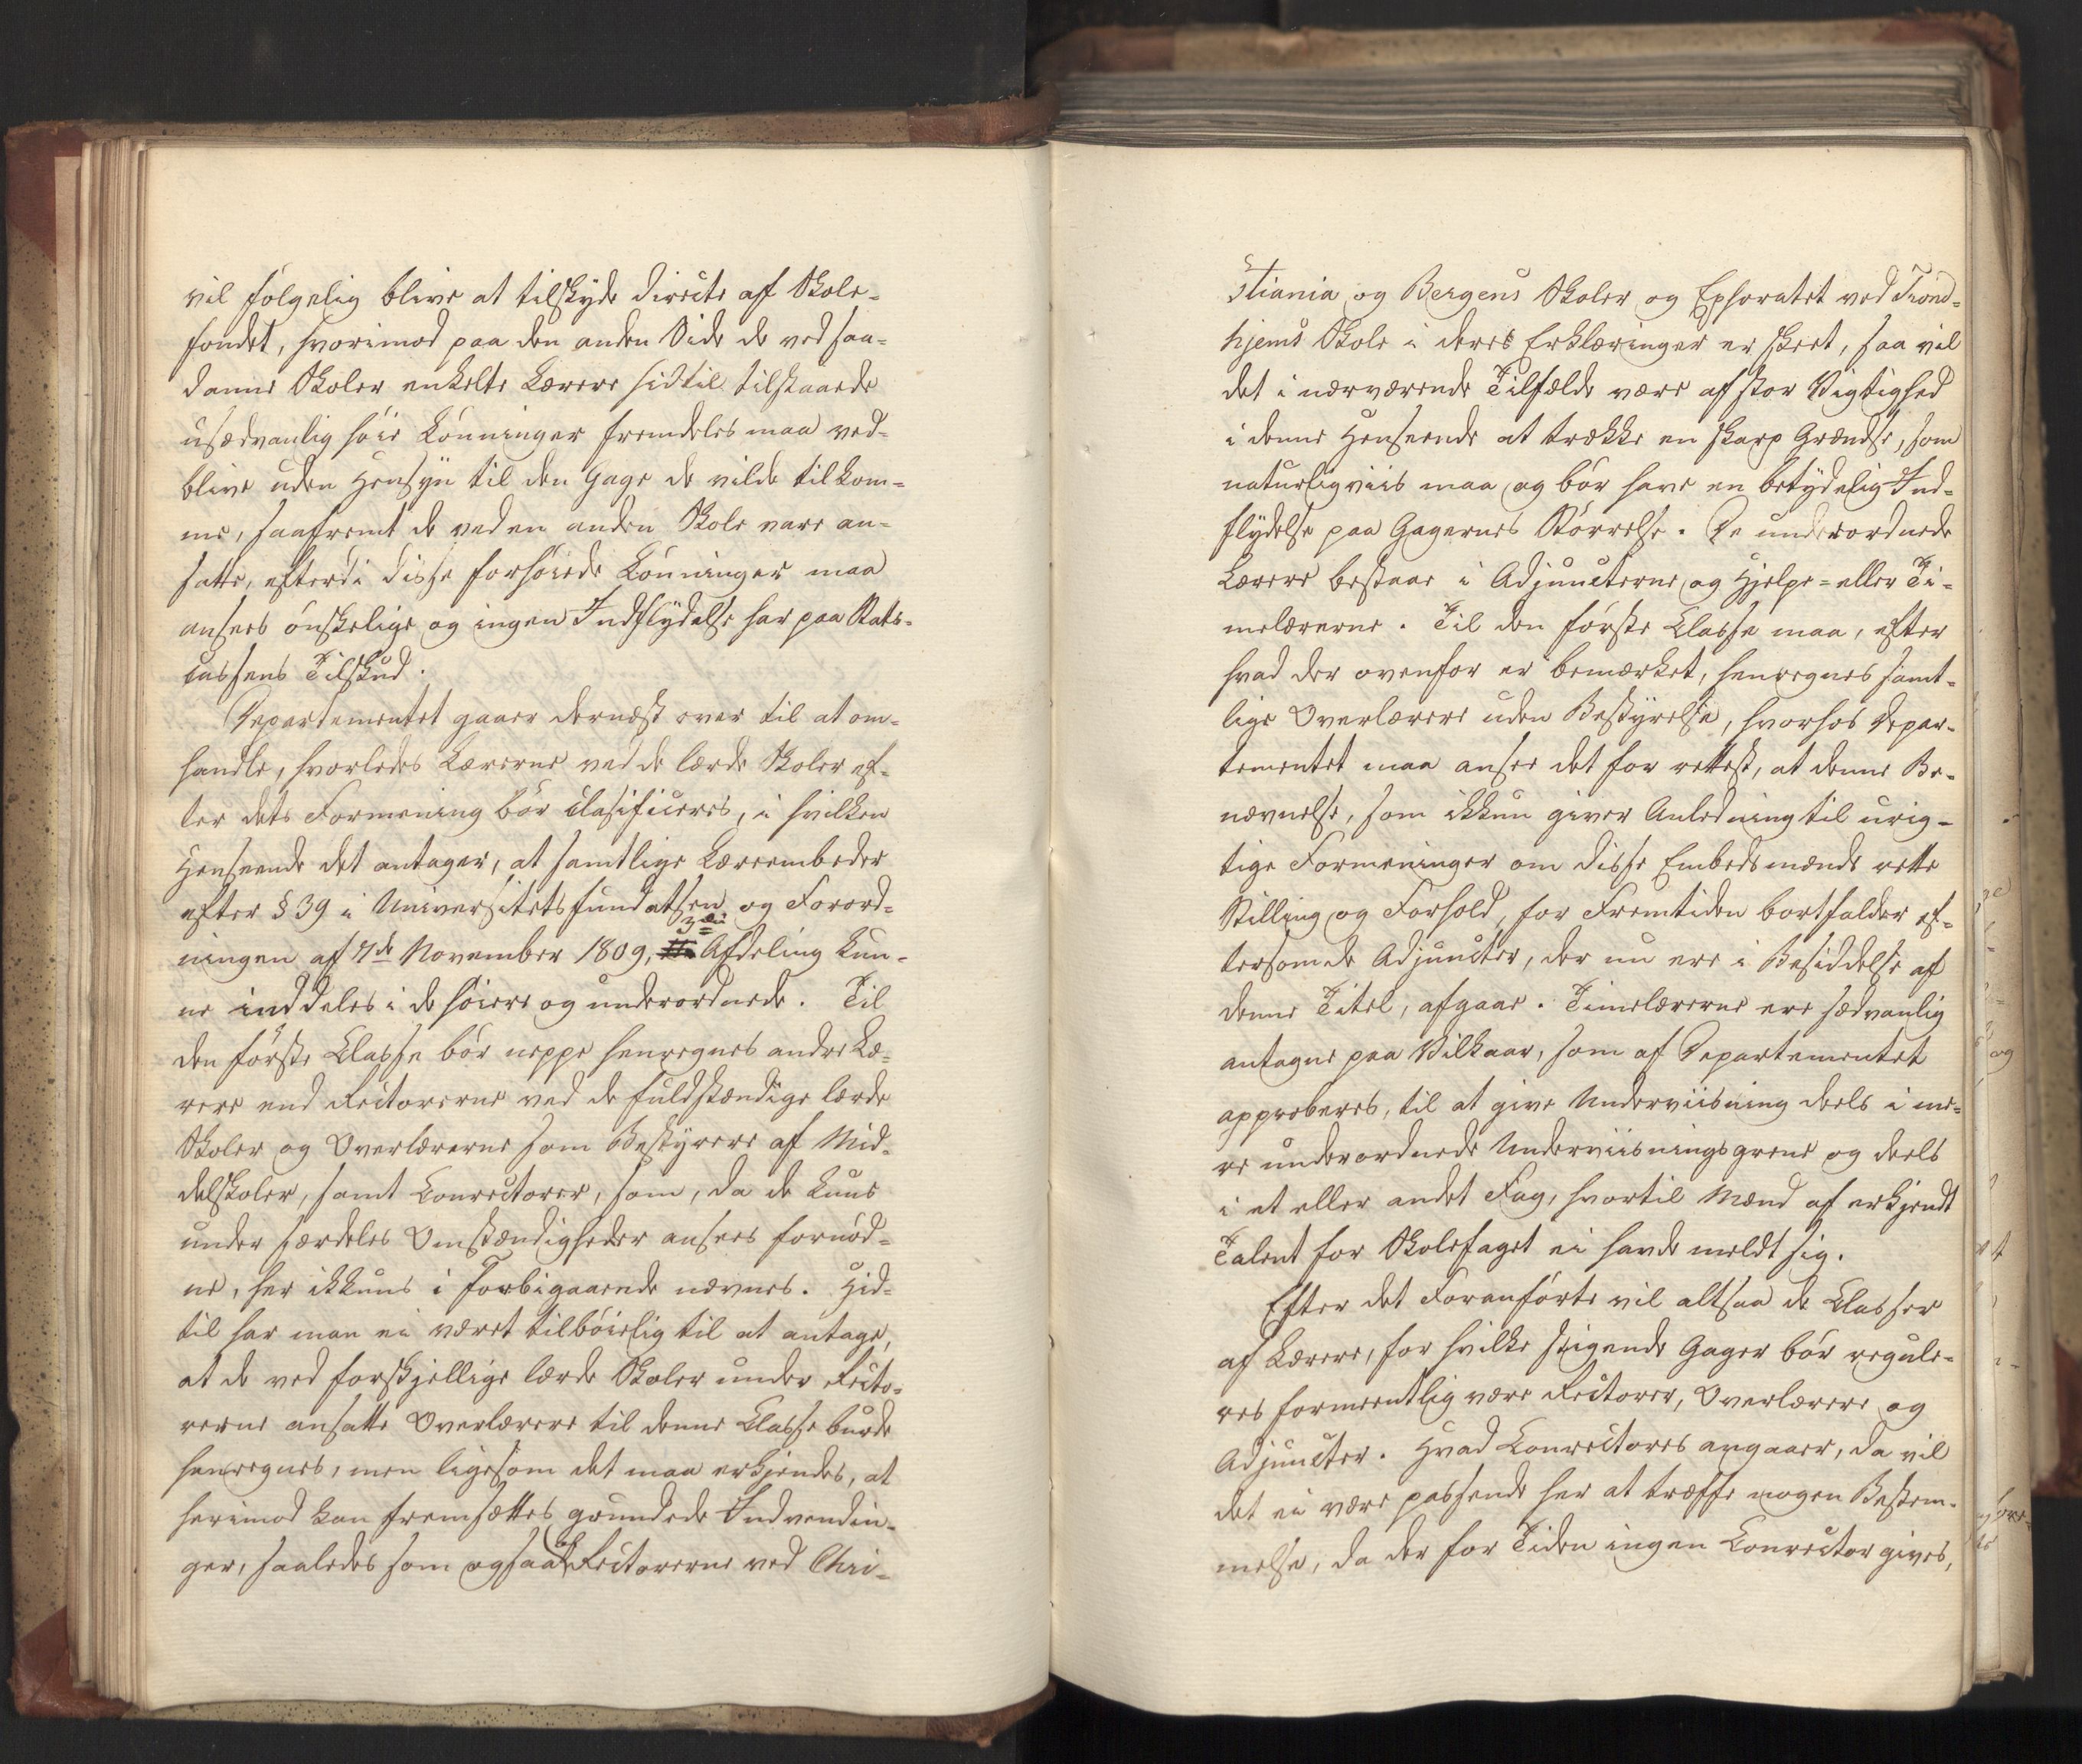 vil følgelig blive at tilskyde directe af Skole-
fondet, hvorimod paa den anden Side de ved saa-
danne Skoler enkelte Lærere hidtil tilstaaede
usædvanlig høie Lønninger fremdeles maa ved-
blive uden Hensyn til den Gage de vilde tilkom-
me, saafremt de ved en anden Skole vare an-
satte, efterdi disse forhøiede Lønninger maa
ansees ønskelige og ingen Indflydelse har paa Stats-
cassens Tilskud.
Departementet gaaer dernæst over til at om-
handle, hvorledes Lærerne ved de lærde Skoler ef-
ter dets Formening bør classificeres, i hvilken
Henseende det antager, at samtlige Læreembeder
efter § 39 i Universitetsfundatsen og Forord-
ningen af 7de November 1809, 3die Afdeling kun-
ne inddeles i de høiere og underordnede. Til
den første Classe bør neppe henregnes andre Læ-
rere end Rectorerne ved de fuldstændige lærde
Skoler og Overlærerne som Bestyrere af Mid-
delskoler, samt Conrectorer, som, da de kuns
under særdeles Omstændigheder ansees fornød-
ne, her ikkuns i Forbigaaende nævnes. Hid-
til har man ei været tilbøielig til at antage,
at de ved forskjellige lærde Skoler under Recto-
rerne ansatte Overlærere til denne Classe burde
henregnes, men ligesom det maa erkjendes, at
herimod kan fremsættes grundede Indvendin-
ger, saaledes som ogsaa af Rectorerne ved Chri-
stiania og Bergens Skoler og Ephoratet ved Trond-
hjems Skole i deres Erklæringer er skeet, saa vil
det i nærværende Tilfælde være af stor Vigtighed
i denne Henseende at trække en skarp Grændse, som
naturligviis maa og bør have en betydelig Ind-
flydelse paa Gagernes Størrelse. De underordnede
Lærere bestaae i Adjuncterne og Hjelpe- eller Ti-
melærerne. Til den første Classe maa, efter
hvad der ovenfor er bemærket, henregnes samt-
lige Overlærere uden Bestyrelse, hvorhos Depar-
tementet maa ansee det for rettest, at denne Be-
nævnelse, som ikkun giver Anledning til urig-
tige Formeninger om disse Embedsmænds rette
Stilling og Forhold, for Fremtiden bortfalder ef-
tersom de Adjuncter, der nu ere i Besiddelse af
denne Titel, afgaae. Timelærerne ere sædvanlig
antagne paa Vilkaar, som af Departementet
approberes, til at give Underviisning deels i me-
re underordnede Underviisningsgrene og deels
i et eller andet Fag, hvortil Mænd af erkjendt
Talent for Skolefaget ei havde meldt sig.
Efter det Foranførte vil altsaa de Classer
af Lærere, for hvilke stigende Gager bør regule-
res formeentlig være Rectorer, Overlærere og
Adjuncter. Hvad Conrectores angaaer, da vil
det ei være passende her at træffe nogen Bestem-
melse, da der for Tiden ingen Conrector gives,